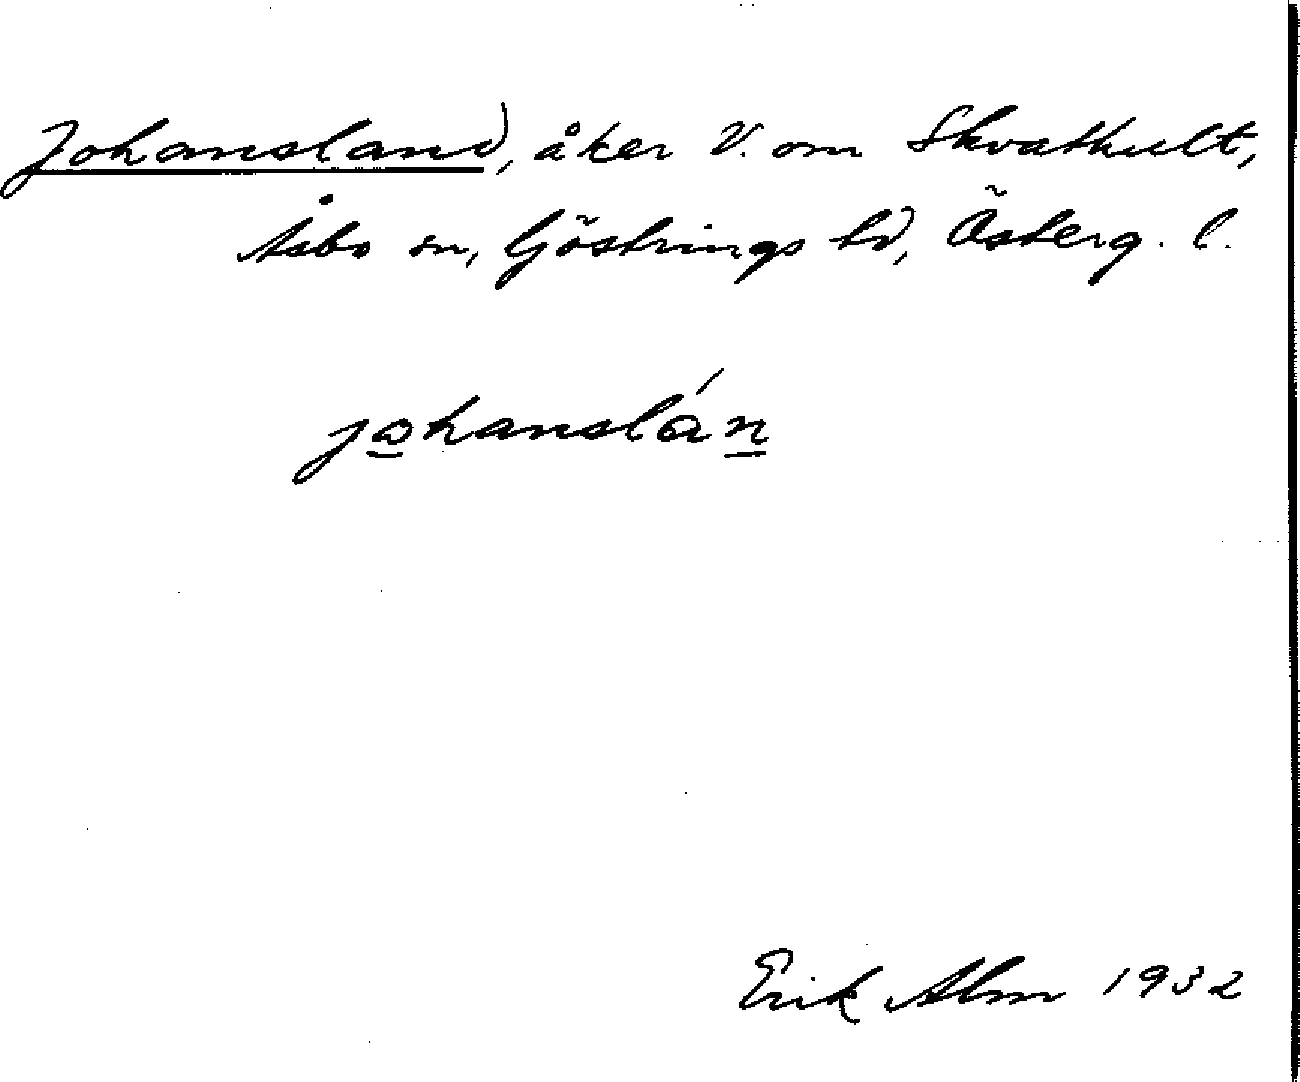 Johansland, åker V. om Skvathult,
Åsbo sn, Göstrings hd, Österg. l.
johanslán
Erik Alm 1932